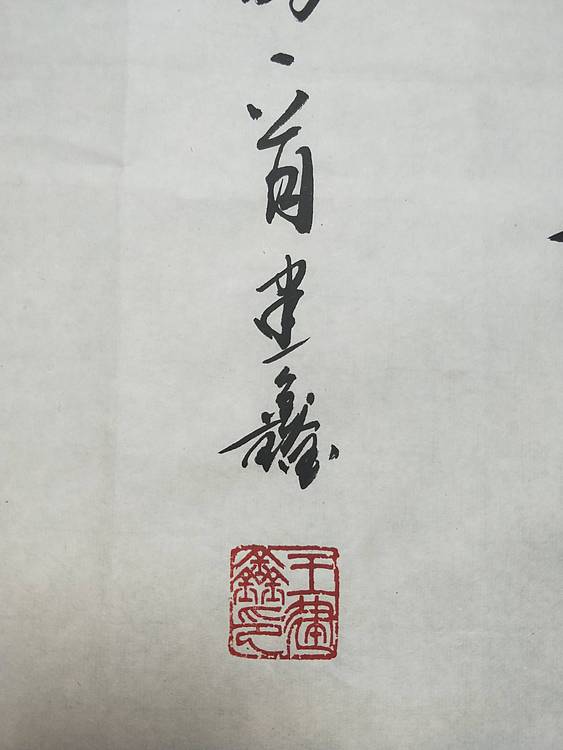 一首建鑫
王建鑫印